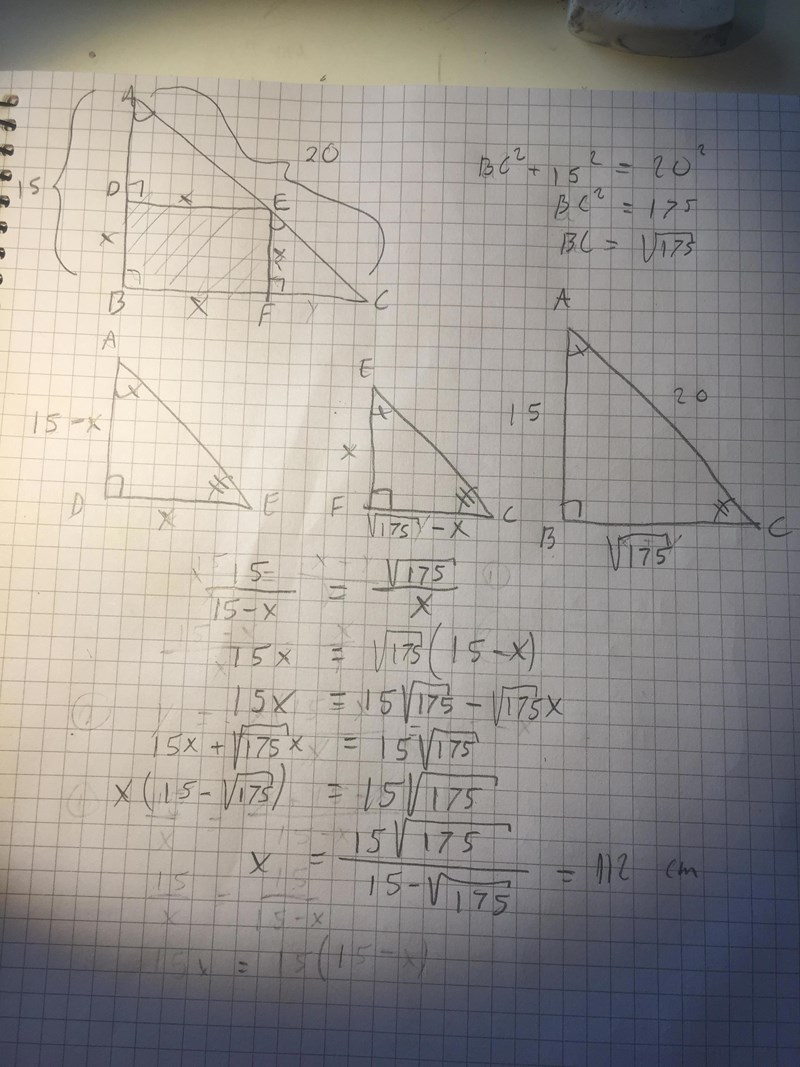 A
15
20
D
x
E
x
x
B
x
F
y
C
BC² + 15² = 20²
BC² = 175
BC = √175
A
15 - x
x
D
x
E
E
x
x
F
√175 - x
C
A
x
15
20
B
√175
C
15 / 15 - x = √175 / x
15x = √175 (15 - x)
15x = 15√175 - √175x
15x + √175x = 15√175
x(15 - √175) = 15√175
x = 15√175 / 15 - √175 = 112 cm
15 / x = 15 / 15 - x
15x = 15(15 - x)